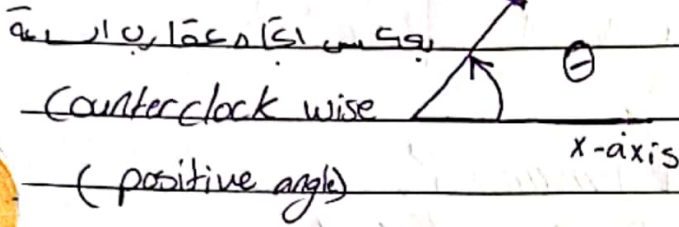 بعكس اتجاه عقارب الساعة
θ
Counterclock wise
x-axis
(positive angle)